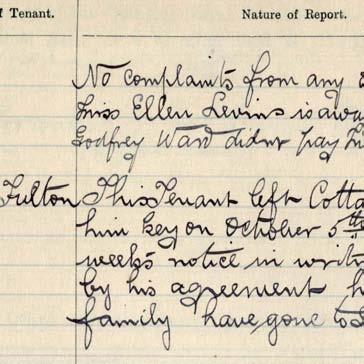 f Tenant. Nature of Report.
No complaints from any
Miss Ellen Levins is away
Godfrey Ward didnt pay
Fulton This Tenant left Cotta
him key on October 5th
weeks notice in writ
by his agreement h
family have gone to